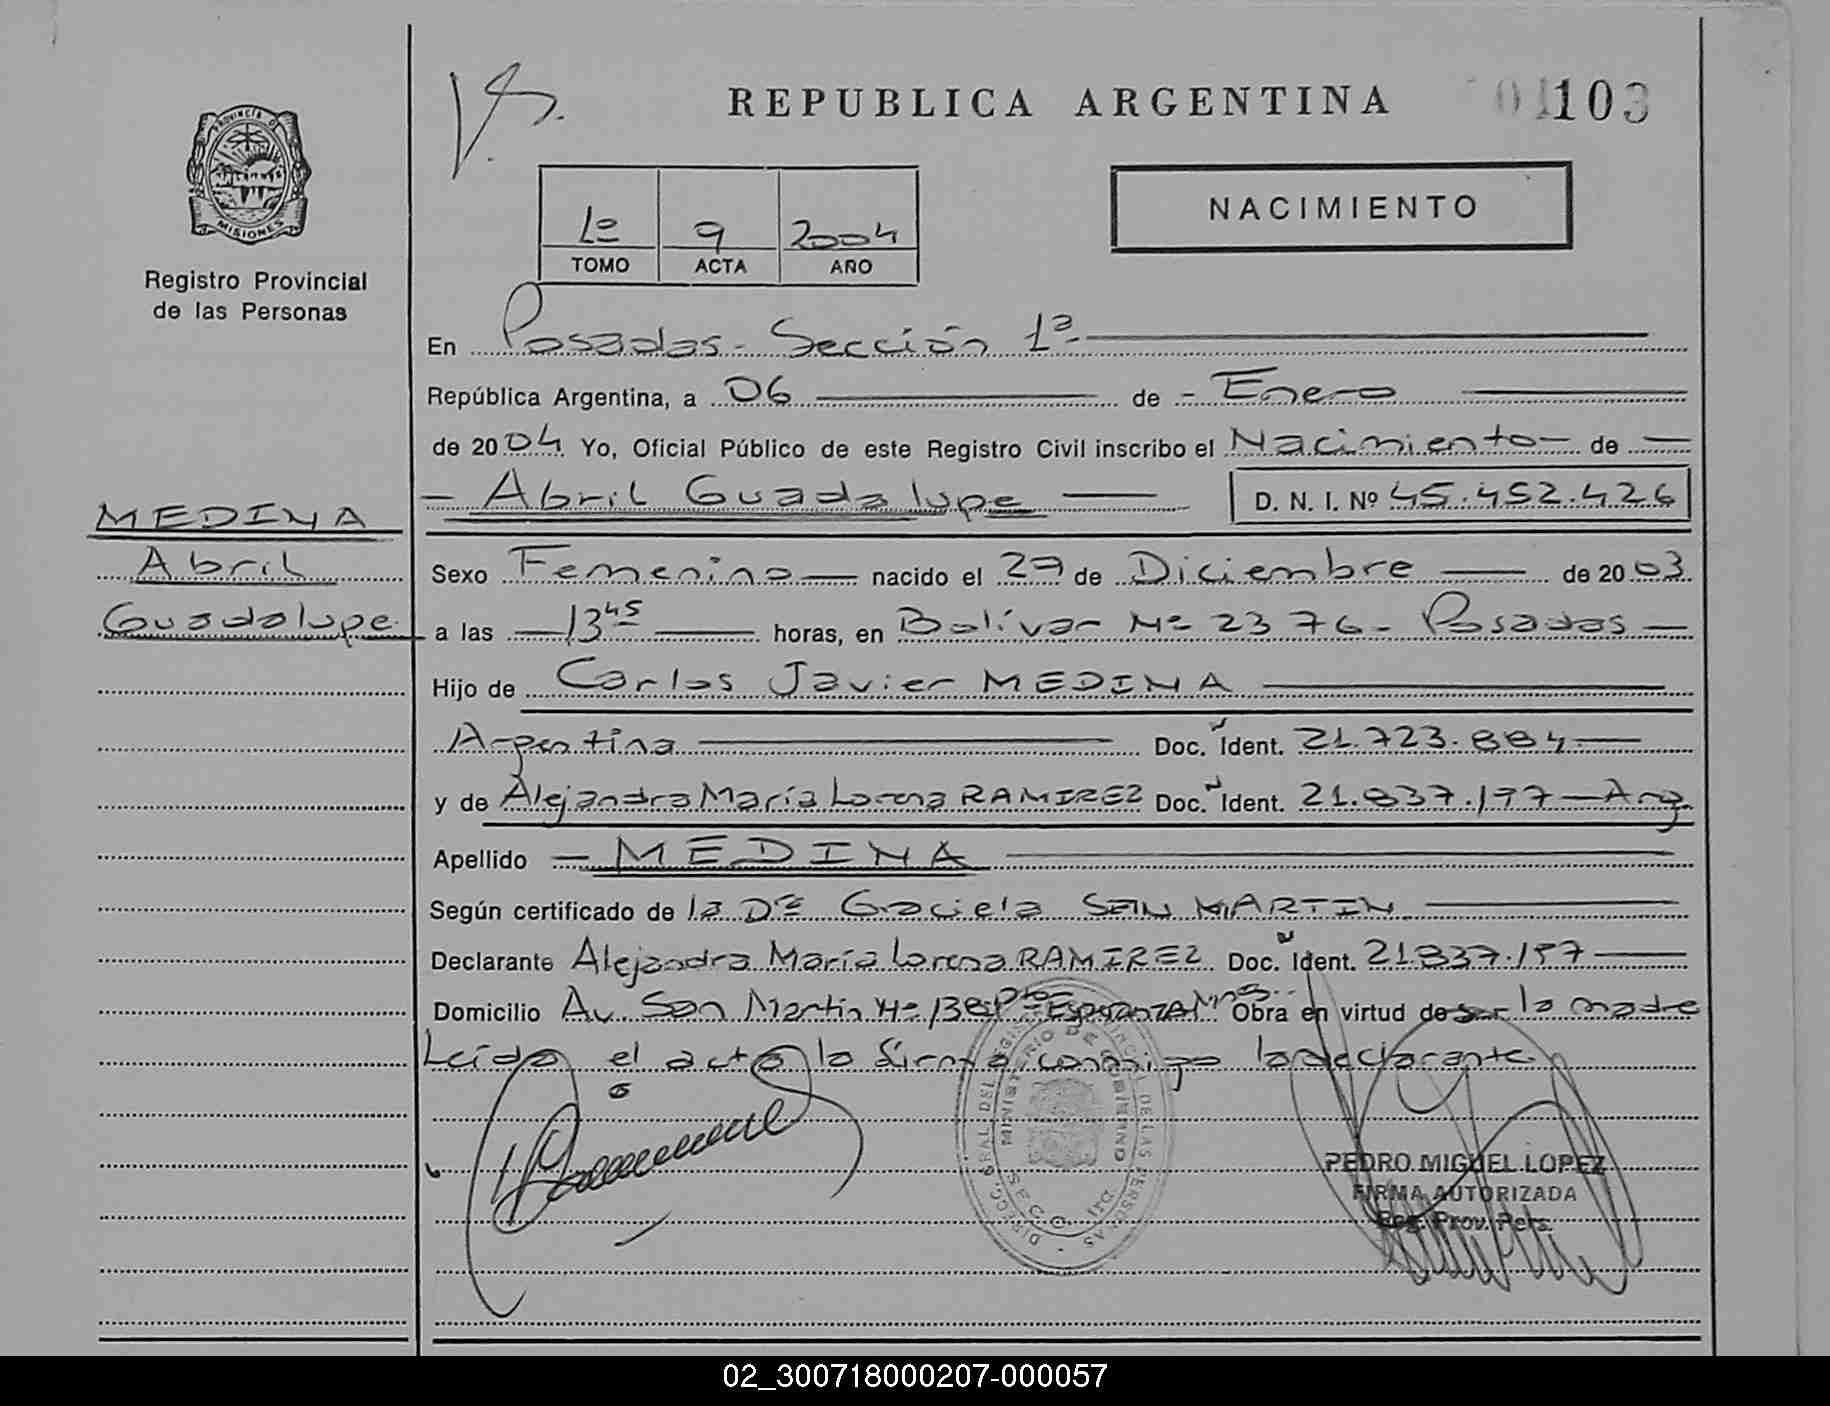 REPUBLICA ARGENTINA
103
PROVINCIA DE
MISIONES
Registro Provincial
de las Personas
NACIMIENTO
1º 9 2004
TOMO ACTA AÑO
En Posadas - Sección 1ª
República Argentina, a 06 de - Enero
de 2004 Yo, Oficial Público de este Registro Civil inscribo el Nacimiento de
Abril Guadalupe D. N. I. Nº 45.452.426
MEDINA
Abril
Guadalupe
Sexo Femenino nacido el 27 de Diciembre de 2003
a las 13 45 horas, en Bolívar Nº 2376 - Posadas
Hijo de Carlos Javier MEDINA
Argentina Doc. Ident. 21.723.884
y de Alejandra María Lorena RAMIREZ Doc. Ident. 21.837.197 - Arg.
Apellido MEDINA
Según certificado de la Dra Graciela SAN MARTIN
Declarante Alejandra María Lorena RAMIREZ Doc. Ident. 21.837.197
Domicilio Av. San Martin Nº Pto ESPERANZA Mnes. Obra en virtud de ser la madre
Leída el acta la firma conmigo la declarante
MINISTERIO DE GOBIERNO
PEDRO MIGUEL LOPEZ
FIRMA AUTORIZADA
Reg. Prov. Pers.
02_300718000207-000057